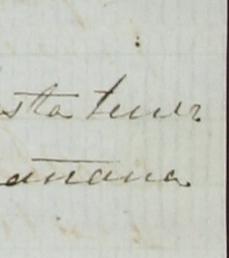 sta tener
añana